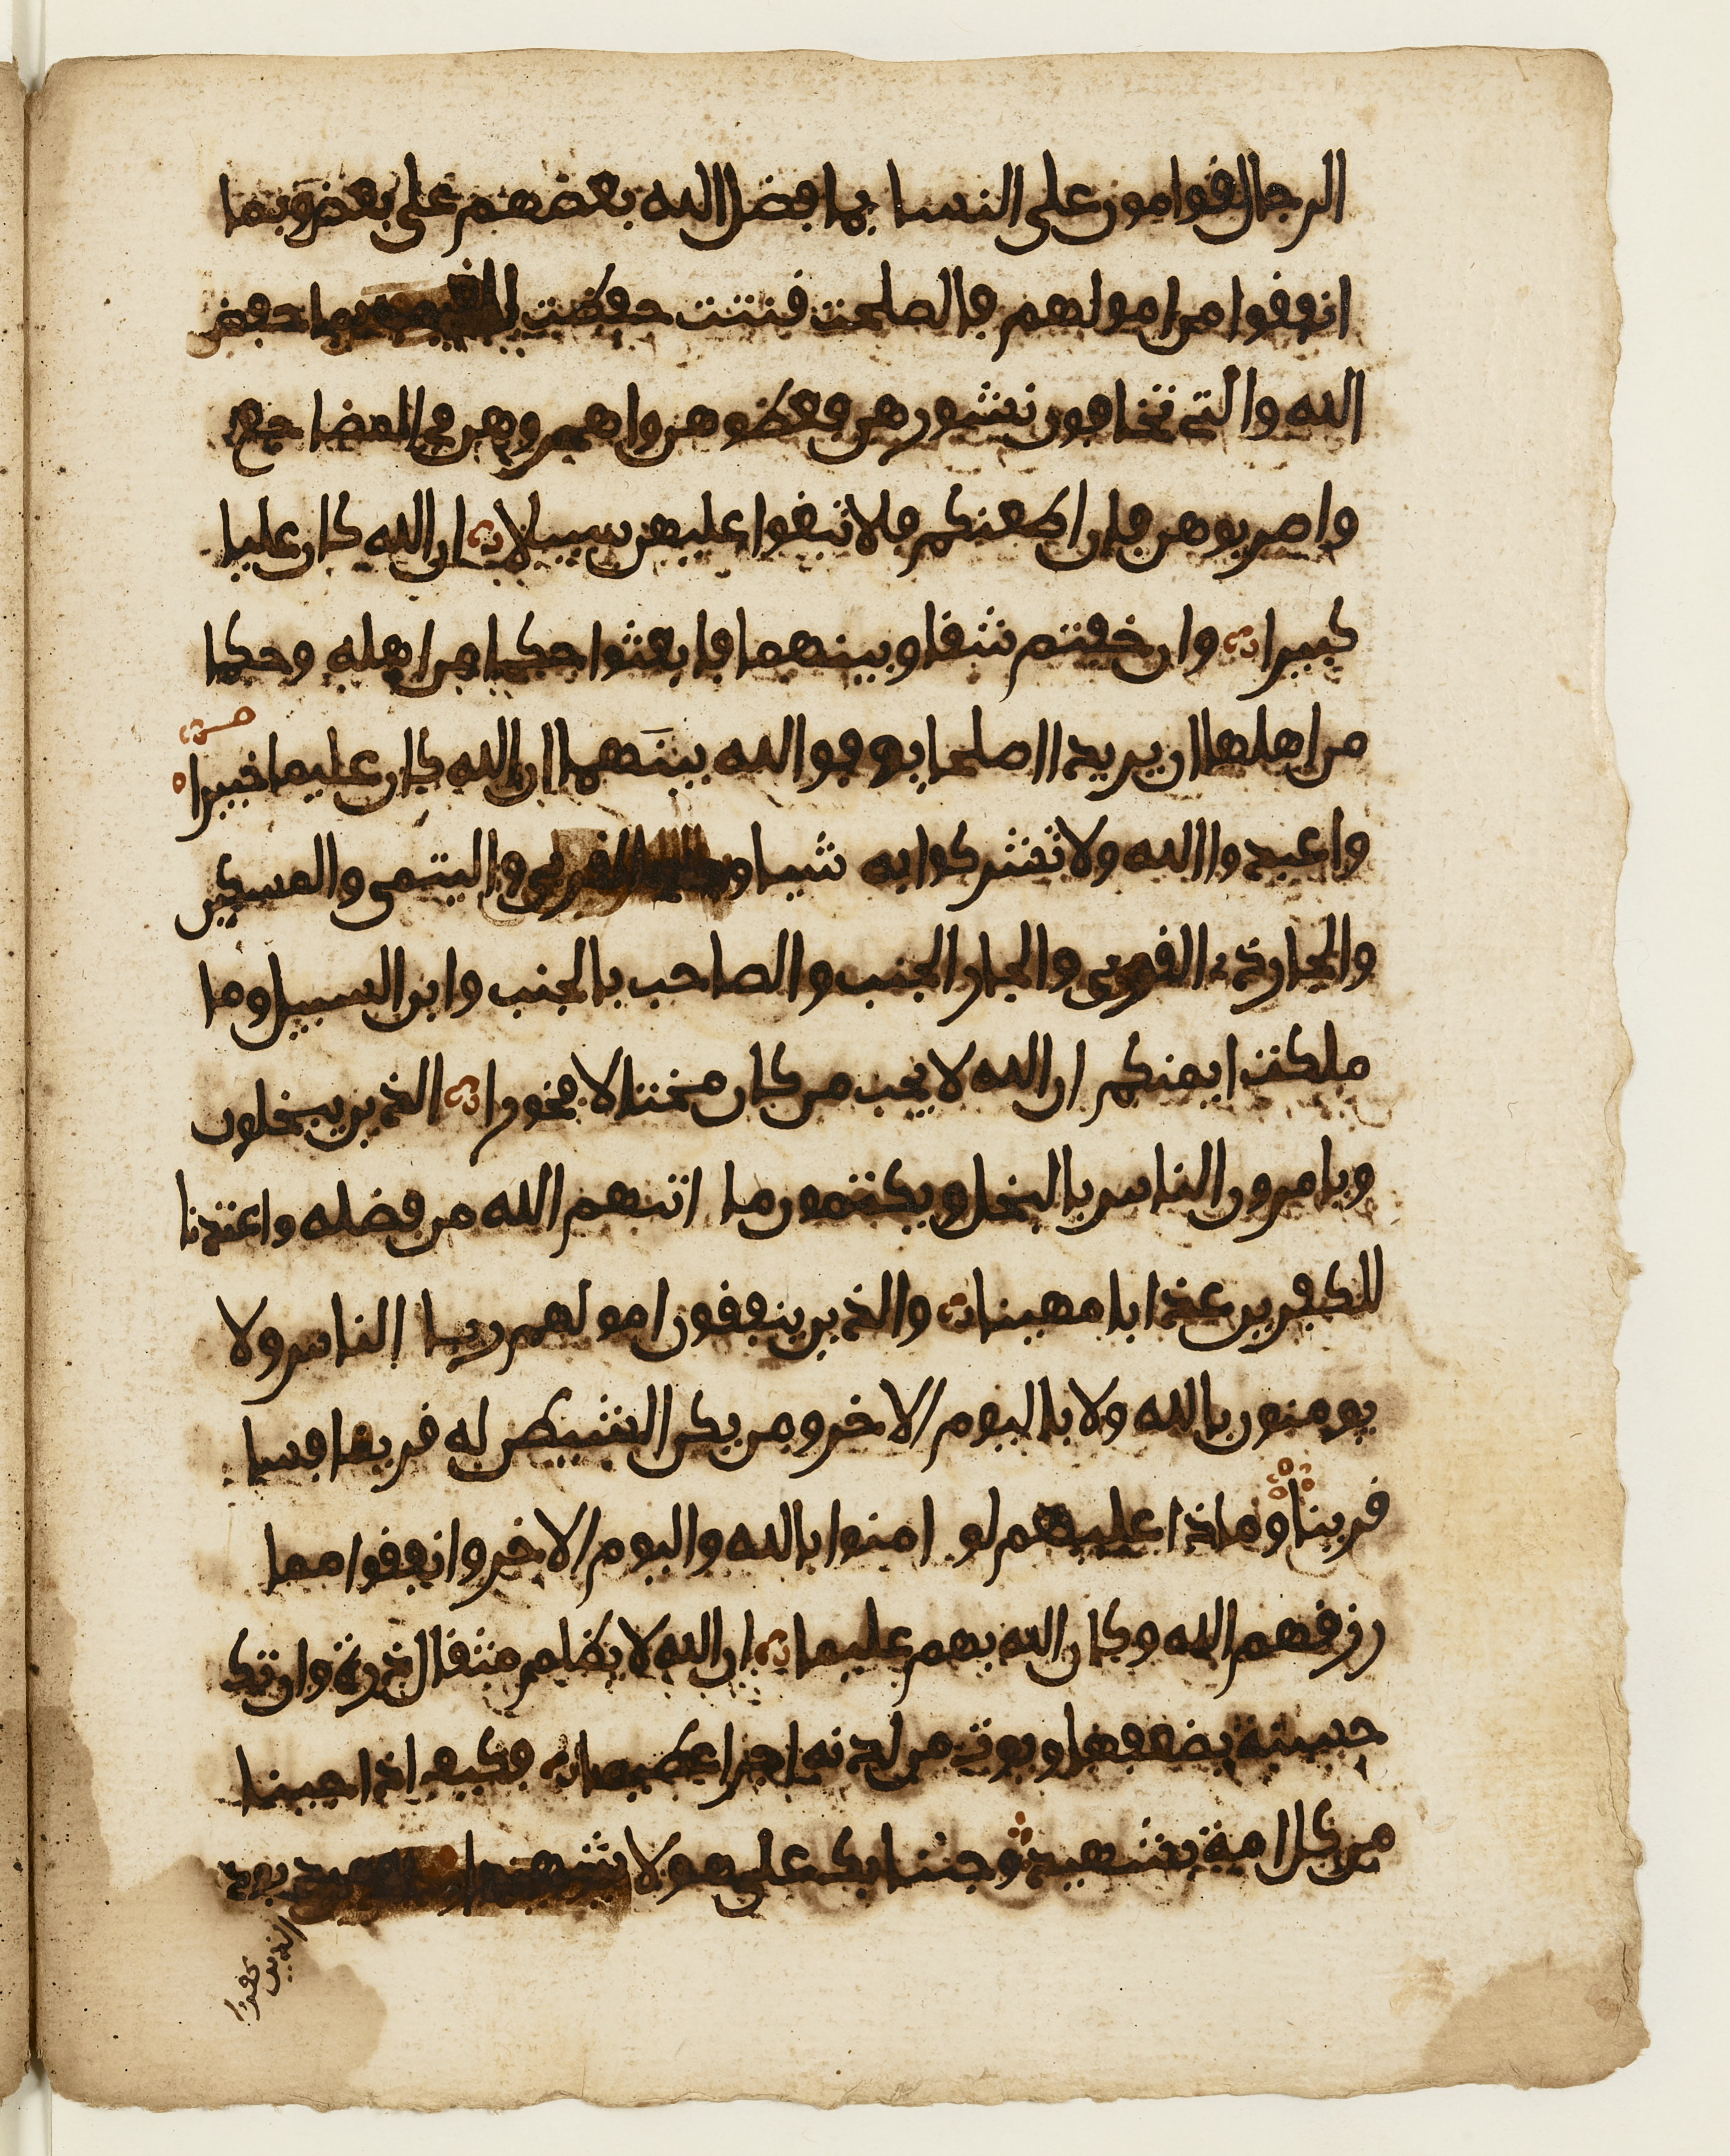 الرجال قوامون على النسا بما فضل الله بعضهم على بعض وبما
انفقوا من امولهم فالصلحت قنتت حفظت للغيب بما حفظ
الله والتي تخافون نشوزهن فعظوهن واهجروهن في المضاجع
واضربوهن فان اطعنكم فلا تبغوا عليهن سبيلا ان الله كان عليا
كبيرا وان خفتم شقاق بينهما فابعثوا حكما من اهله وحكما
من اهلها ان يريدا اصلحا يوفق الله بينهما ان الله كان عليما خبيرا
واعبدوا الله ولا تشركوا به شيا و القربى واليتمى والمسكين
والجار ذي القربى والجار الجنب والصاحب بالجنب وابن السبيل وما
ملكت ايمنكم ان الله لا يحب من كان مختالا فخورا الذين يبخلون
ويامرون الناس بالبخل ويكتمون ما اتىهم الله من فضله واعتدنا
للكفرين عذابا مهينا والذين ينفقون امولهم ريا الناس ولا
يومنون بالله ولا باليوم الاخر ومن يكن الشيطن له قرينا فسا
قرينا وماذا عليهم لو امنوا بالله واليوم الاخر وانفقوا مما
رزقهم الله وكان الله بهم عليما ان الله لا يظلم مثقال ذرة وان تك
حسنة يضعفها ويوت من لدنه اجرا عظيما فكيف اذا جينا
من كل امة بشهيد وجئنا بك على هولا شهيدا يود
الذين كفروا